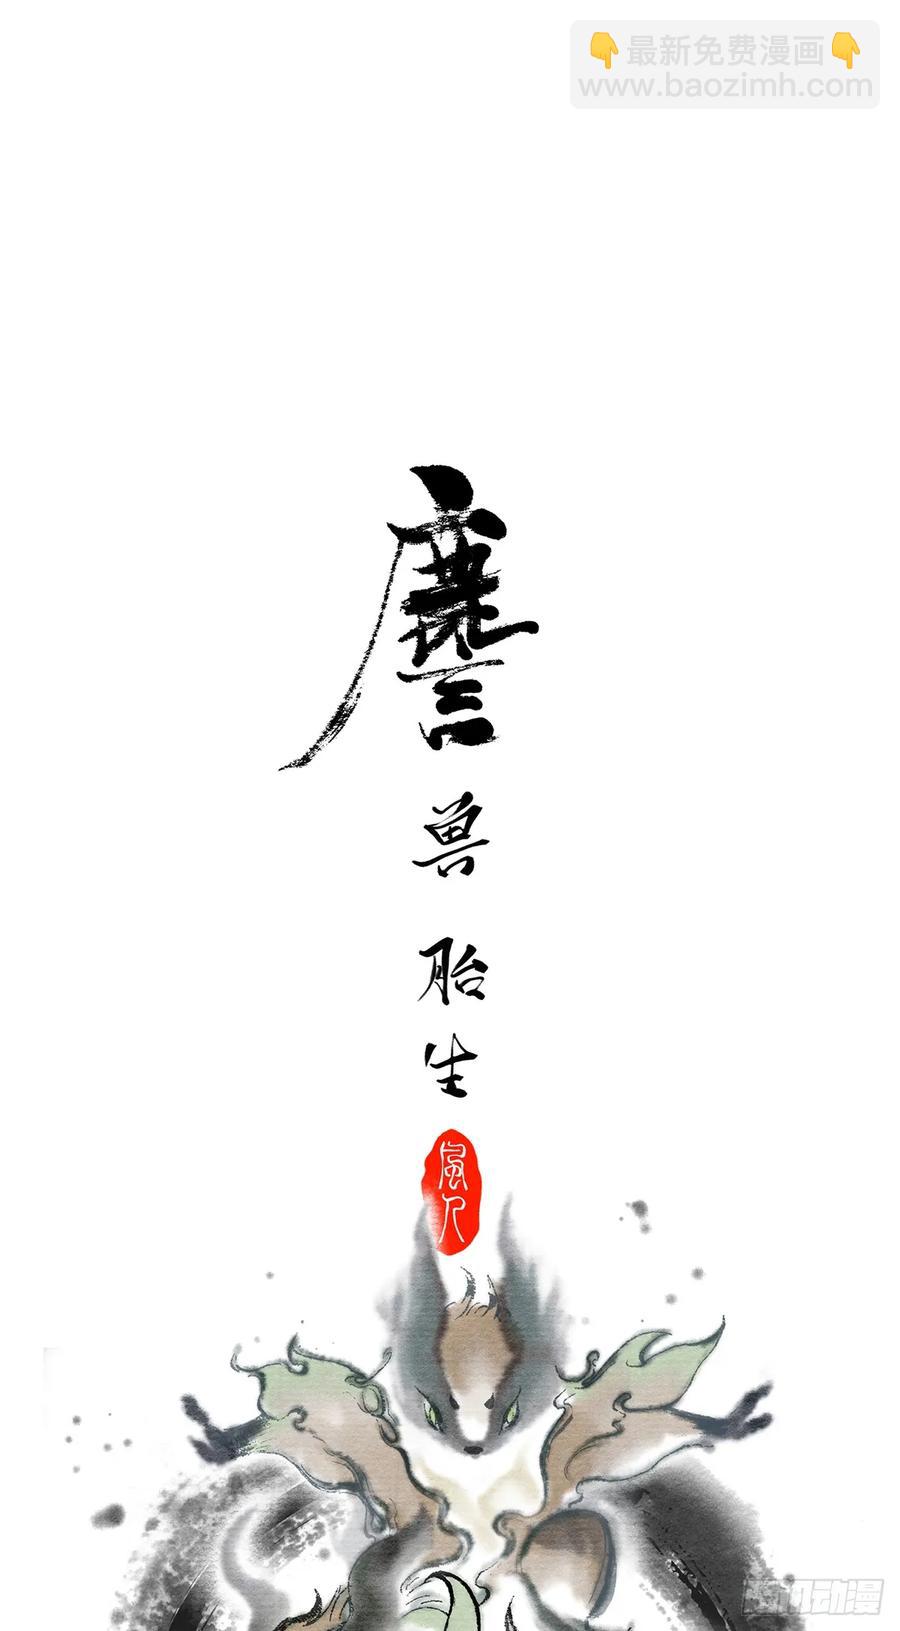 👇最新免费漫画👇
www.baozimh.com
兽
胎
生
風
人
腾讯动漫